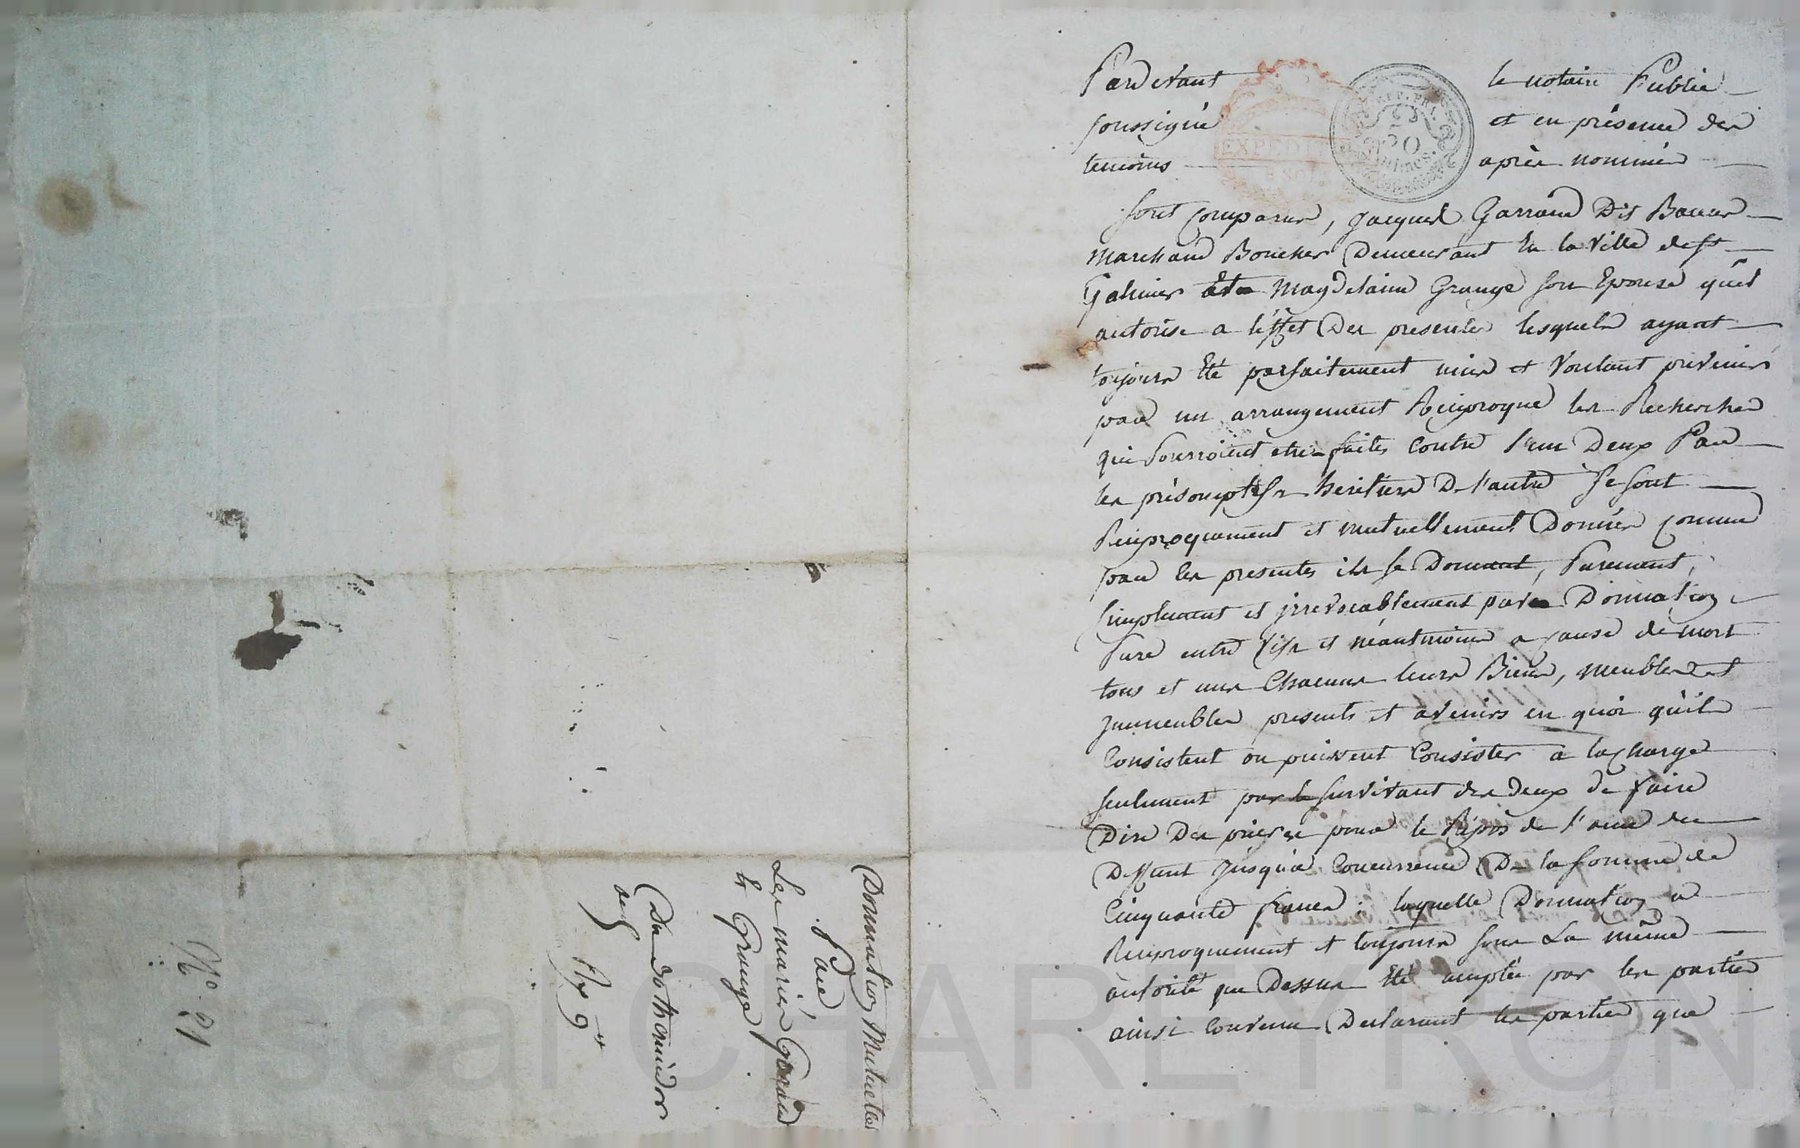 Pardevant le notaire Public
soussigné et en présence des
temoins après nommés
sont comparus, jacques Garraud Dit
Marchand Boucher Demeurant En la Ville de st
Galmier et Magdelaine Grange son Epouse qu'il
autorise a l'effet Des presentes lesquels ayant
toujours Eté parfaitement unis et Voulant prévenir
par un arrangement Réciproque les Recherches
qui Pourroient etre faites contre l'un Deux Par
les présomptifs héritiers De l'autre se sont
Réciproquement et mutuellement Donnés comme
par les presentes ils se Donnent, Purement,
simplement et jrrevocablement par Donnation
Pure entre vifs et néantmoins a cause de mort
tous et uns chacuns leurs Biens, meubles et
jmmeubles presents et avenirs en quoi qu'ils
Consistent ou puissent Consister a la charge
seulement par le survivant des deux de faire
Dire Des prieres pour le Répos de l'ame du
Deffunt jusqu'a Concurrence De la somme de
Cinquante francs. laquelle Donnation a
Réciproquement et toujours sous La même
autorité que Dessus été acceptée par les parties
ainsi Convenu Declarant les parties que
EXPEDI
REP. FRA.
50
Centimes.
Donnation Mutuelle
Par
Les mariés Garraud
et Grange
Du 30 thermidor
an 9
N° 21
Pascal CHAREYRON